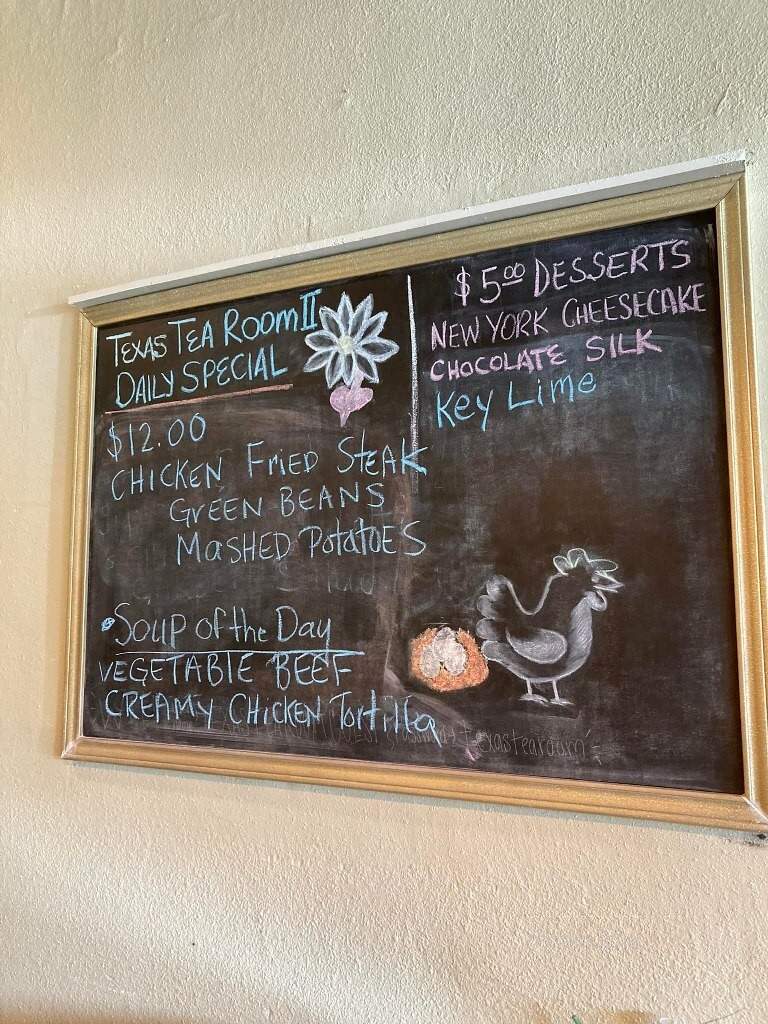 TEXAS TEA ROOM II
DAILY SPECIAL
$12.00
CHICKEN FRIED STEAK
GREEN BEANS
MASHED POTATOES
Soup of the Day
VEGETABLE BEEF
CREAMY CHICKEN Tortilla
texastearoom
$5.00 DESSERTS
NEW YORK CHEESECAKE
CHOCOLATE SILK
Key Lime